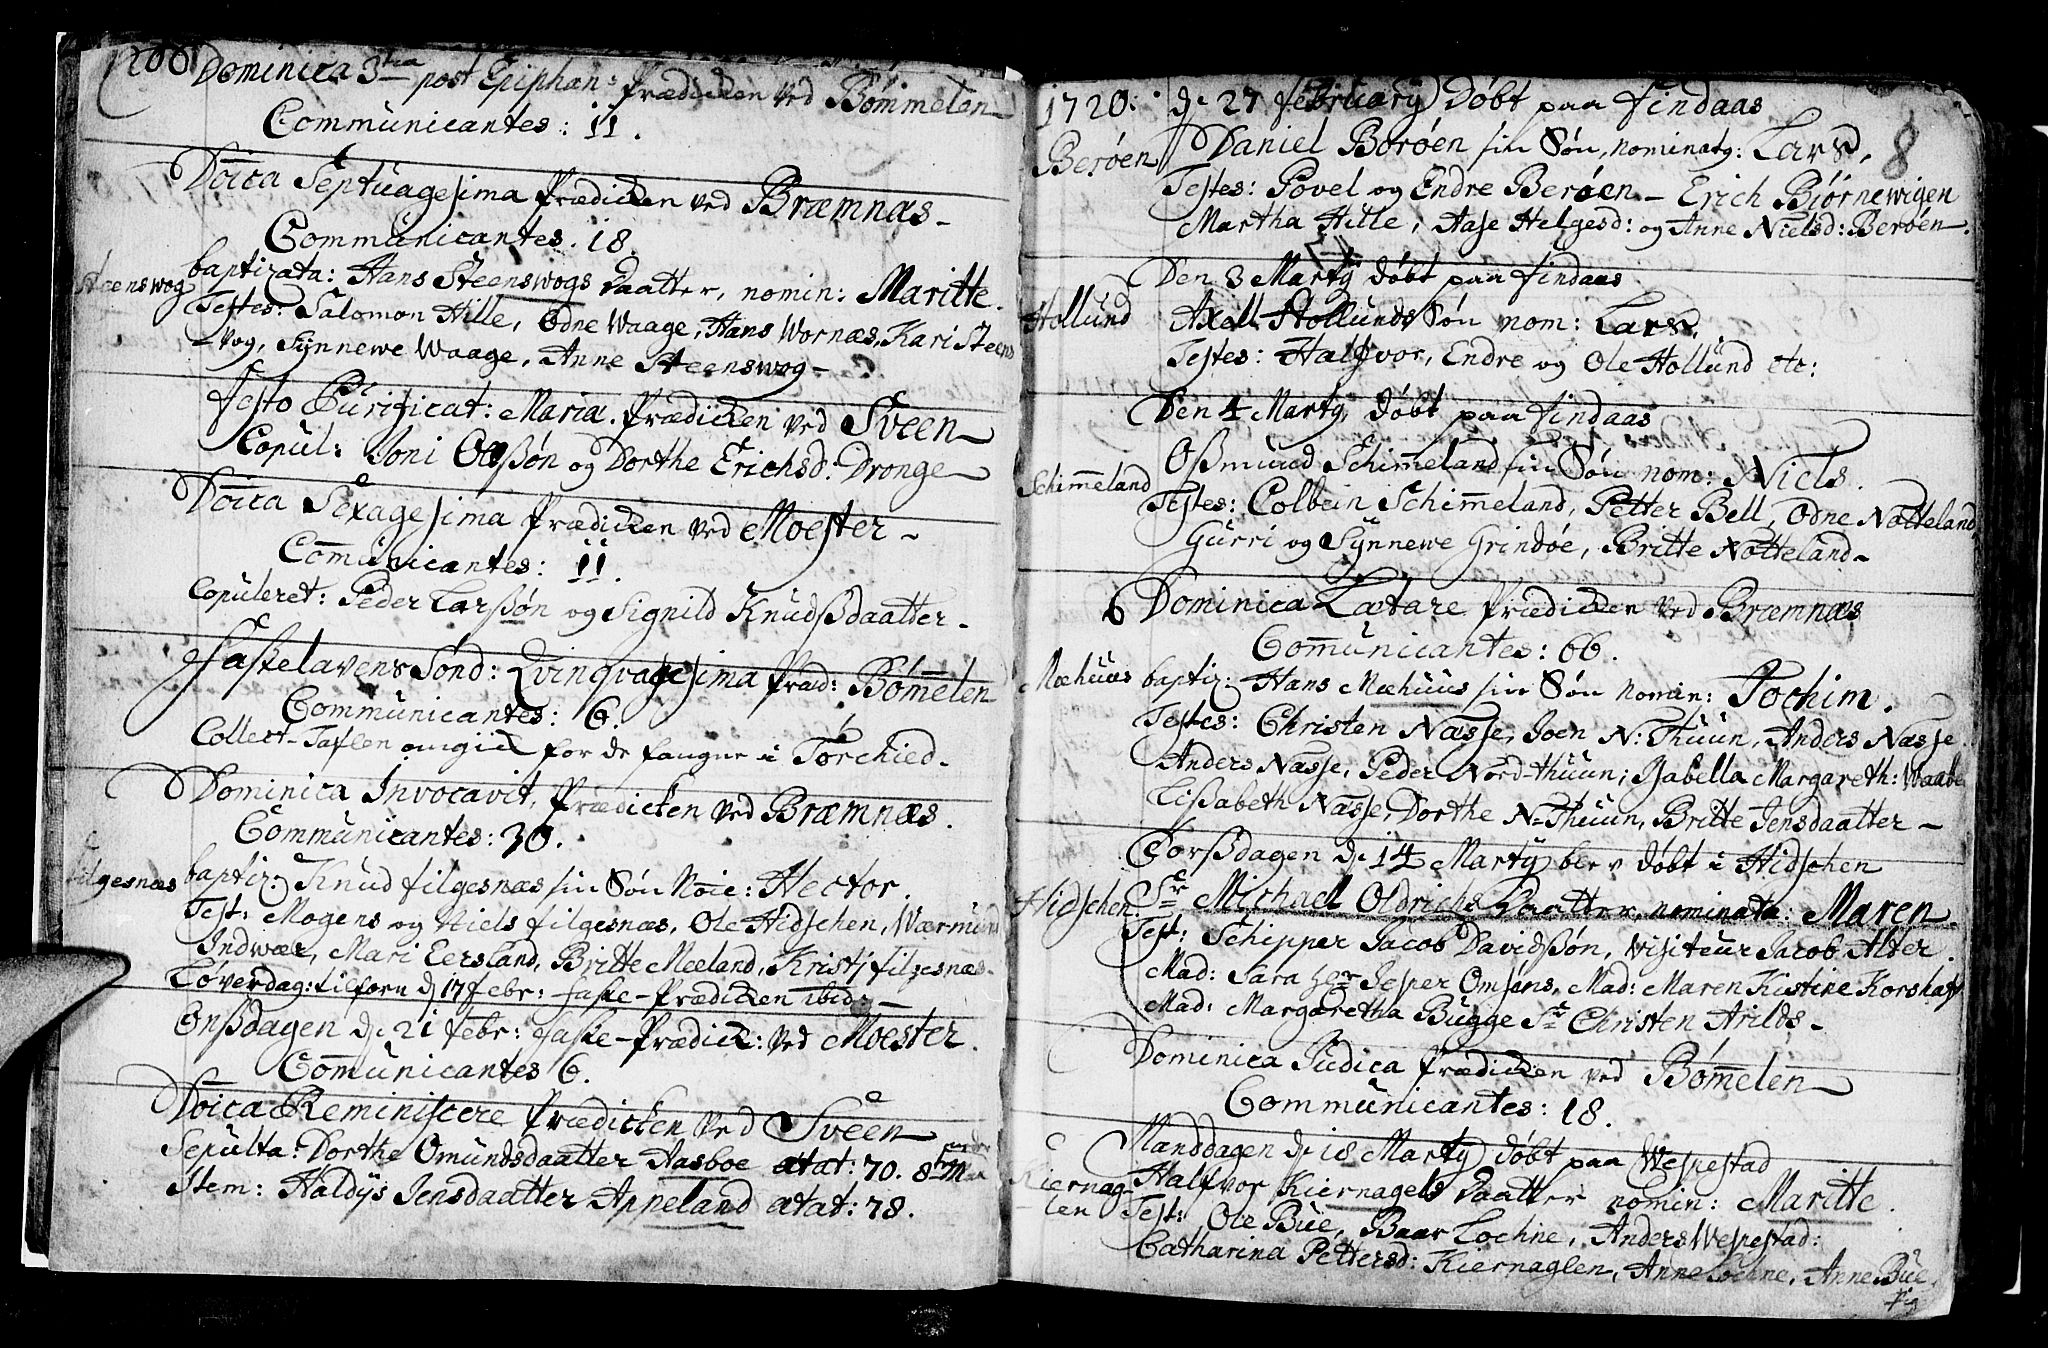 Dominica 3tia post Epiphan: Prædicken ved Bömmelen
Communicantes: 11.
Doica Septuagesima Prædicken ved Bræmnæs
Communicantes. 18.
Steenswog
baptizata: Hans Steenswogs Daatter, nomin: Maritte.
Testes: Salomon Hille, Odne Waage, Hans Wornæs, Kari Steens
wog, Synnewe Waage, Anne Steenswog
Festo Purificat: Mariæ. Prædicken ved Sveen
Copul: Joni Olßøn og Dorthe Erichsd: Dronge
Doica Sexagesima Prædicken ved Moester
Comunicantes: 11.
Copuleret: Peder Larßøn og Signild Knudßdaatter.
Fastelavens Sönd: Qvinqvagesima Præd: Bömelen
Communicantes: 6.
Collect-Taflen omgik for de fangne i Törchied.
Dominica Invocavit, Prædicken ved Bræmnæs.
Communicantes: 30.
Filgesnæs
baptiz: Knud Filgesnæs sin Søn Noie: Hector.
Test: Mogens og Niels Filgesnæs, Ole Hidschen, Wærmund
Indwær, Mari Eersland, Britte Meeland, Kristj Filgesnæs
Löverdag: tilforn d 17 Febr: Faste-Prædicken ibid:
Onßdagen d. 21 Febr: Faste-Prædick: ved Moester.
Comunicantes 6.
Doica Reminiscere Prædicken ved Sveen
Sepulta: Dorthe Omundsdaatter Aasboe ætat: 70. 8
Item: Haldys Jensdaatter Appeland ætat: 78.
1720. d. 27 February Döbt paa Findaas
8
Beröen
Daniel Boröen sin Sön, nominatg: Lars.
Testes: Povel og Endre Beröen - Erich Biörnewigen
Martha Hille, Aase Helgesd: og Anne Nielsd: Beröen.
Den 3 Marty döbt paa Findaas
Hollund
Axell Hollunds Sön nom: Lars.
Testes: Halfvor, Endre og Ole Hollund etc:
Den 4 Marty, döbt paa Findaas
Schimeland
Oßmund Schimeland sin Sön nom: Niels.
Testes: Colbein Schimeland, Petter Bell, Odne Notteland
Gurri og Synnewe Grindöe, Britte Notteland
Dominica Lætare Prædicken ved Bræmnæs
Comunicantes: 66.
Mæhuus
baptiz: Hans Mæhuus sin Sön Nomin: Jochim.
Testes: Christen Næsse, Joen N: Thuun, Anders Næsse
Anders Næsse, Peder Nord-thuun, Isabella Margareth: Waabe
Lißabeth Næsse, Dorthe N: Thuun, Britte Jensdaatter
Torßdagen d. 14 Marty blev döbt i Hidschen
Hidschen.
Sr Michael Oldrichs Daatter, nominata: Maren.
Test: Schipper Jacob Davidßøn, Visiteur Jacob Alter.
Mad: Sara Hr Jesper Omsens, Mad: Maren Kistine Korshafs
Mad: Margaretha Bugge Sr Christen Arilds
Dominica Judica Prædicken ved Bömelen
Communicantes: 18.
Manddagen d. 18 Marty döbt paa Wespestad
Kiernag-
len
Halfvor Kiernagels Daatter nomin: Maritte.
Test: Ole Büe, Baar Lochne, Anders Wespestad:
Catharina Pettersd: Kiernaglen, Anne Lochne, Anne Büe.